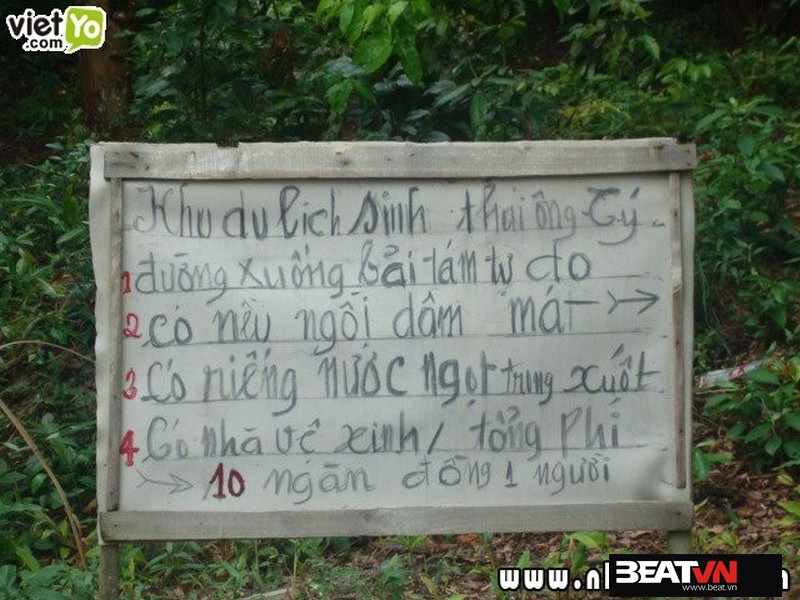 việt YO
.com
Khu du lich sinh thai ông Tý
1 đường xuống bải tắm tự do
2 có nều ngồi dâm mát
3 Có riếng nước ngọt trung xuốt
4 Có nhà vê xinh / tổng Phí
10 ngàn đồng 1 người
www.n
BEATVN
www.beat.vn